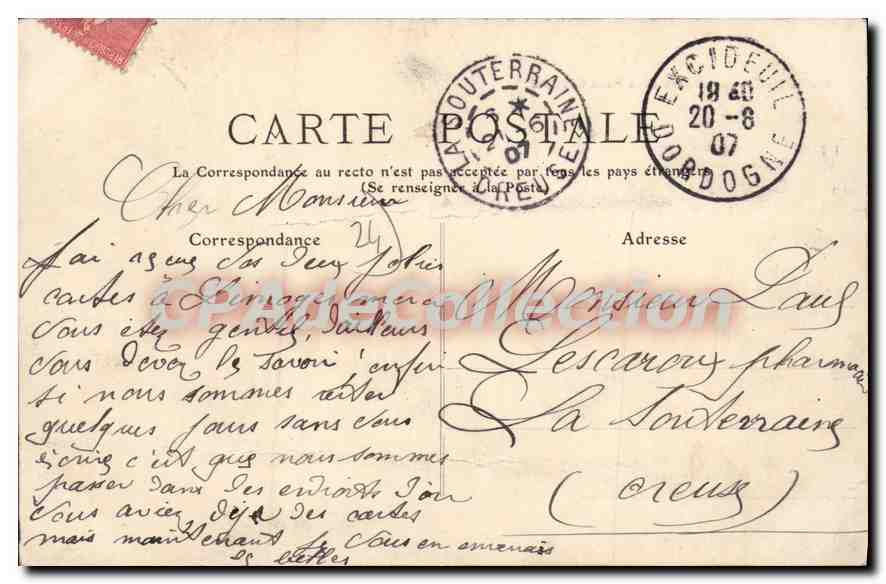 LA SOUTERRAINE
CREUSE
6
07
EXCIDEUIL
18 40
20 -8
07
DORDOGNE
CARTE POSTALE
La Correspondance au recto n'est pas acceptée par tous les pays étrangers
(Se renseigner à la Poste)
Cher Monsieur
24
Correspondance
J'ai reçus vos deux jolies
cartes à Limoges merci
vous êtes gentil, d'ailleurs
vous devez le savoir! enfin
si nous sommes rester
quelques jours sans vous
écrire c'est que nous sommes
passer dans des endroits d'où
vous aviez déjà des cartes
mais maintenant je vous en
belles
Adresse
Monsieur Paul
Lescaroux pharmacien
La Souterraine
(Creuse)
CPAdeCollection